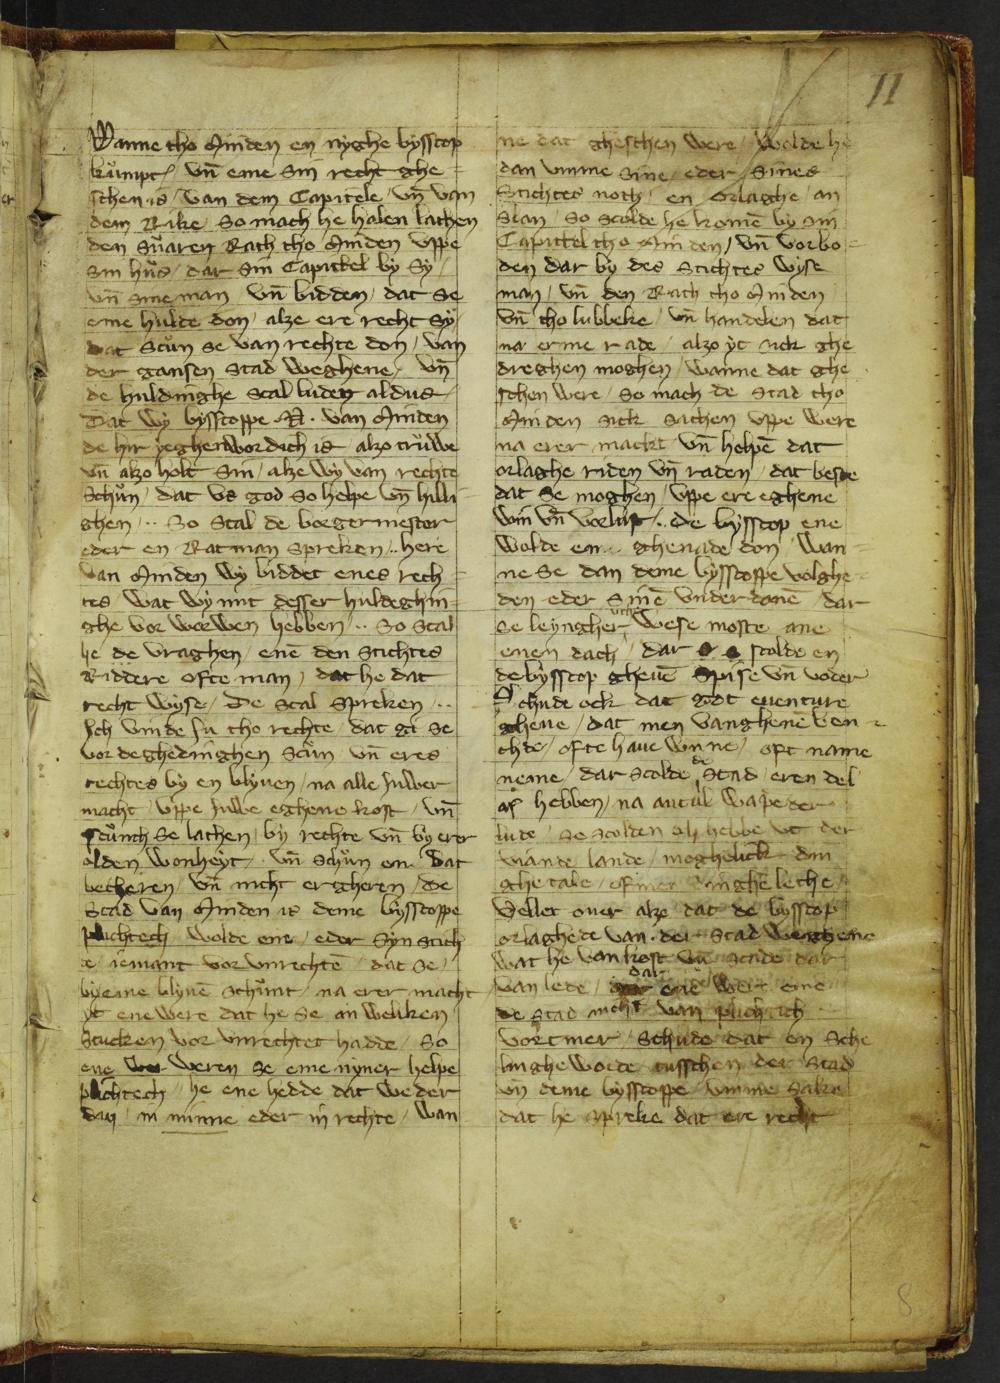 11
Wanne tho Minden en nyghe bysscop
kůmpt / vn̄ eme sin recht ghe =
schen is / van dem Capitele / vn̄ van
dem Rike / so mach he halen lathen
den swaren Rath tho Minden vppe
sin hůs / dar sin Capittel by sy /
vn̄ sine man / vn̄ bidden / dat se
eme hulde don / alze ere recht sy /
dat scůn se van rechte don / van
der gansen Stad weghene / vn̄
de huldinghe scal luden aldus /
Dat wy bysscoppe .N. van Minden
de hir yeghenwordich is / alzo trůwe
vn̄ alzo holt sin / alze wy van rechte
schůn / dat vs god so helpe vn̄ hilli =
ghen / .. So scal de borgermester
eder en Ratman spreken / .. here
van Minden wy biddet enes rech =
tes / wat wy mit desser huldeghin =
ghe vor worwen hebben / .. So scal
he de vraghen / enē den Stichtes
Riddere ofte man / dat he dat
recht wyse / De scal spreken / ..
Ich vinde ju tho rechte / dat gi se
vor deghedinghen scůn vn̄ eres
rechtes by en blyuen / na alle juwer
macht / vppe juwe eghene kost / vn̄
scůnch se lathen / by rechte vn̄ by erer
olden wonheyt / vn̄ schůn en dat
betheren / vn̄ nicht ergheren / De
Stad van Minden is deme bysscoppe
plichtech wolde ene / eder syn stich
te iemant vor vnrechtē / dat se /
by eme blyuē schůnt / na erer macht
yt ene were dat he se an weliken
stucken vor vnrechtet hadde / So
ene weren se eme nyner helpe
plichtech / he ene hedde dat weder
dan / in minne eder in rechte / wan
ne dat gheschen were / Wolde he
dan vmme sine / eder sines
Stichtes noth / en orlaghe / an
slan / so scolde he komē by sin
Capittel tho Minden / vn̄ vorbo =
den dar by des Stichtes wyse
man / vn̄ den Rath tho Minden
vn̄ tho lubbeke / vn̄ handelen dat
na erme rade / alzo yt sick ghe
dreghen moghen / wanne dat ghe
schen were / so mach de Stad tho
Minden sick sachen vppe were
na erer mackt vn̄ helpē dat
orlaghe riden vn̄ raden / dat beste
dat se moghen / vppe ere eghene
win vn̄ vorlust / .. De bysscop ene
wolde en .. ghenade don / Wan =
ne se dan deme bysscoppe volghe =
den eder sinē vnder danē / dar
se leyngher vthe wese moste ane
enen dach / dar scolde en
de bysscop gheuē spise vn̄ voder
Schude ock dat god euenture
gheue / dat men vanghene ven =
chde / ofte haue wnne / oft name
neme / dar scolde de Stad eren del
an hebben / na antal wapeder
lude / se scolden ok hebbe vt der
viande lande / moghelick din
ghetale / of leche
Vellet ouer alze dat de bysscop
orlaghede van der Stad weghene
wat he van kost vn̄ scade dar
van lede / dat ene were eme
de Stad nicht van plichtich
Vortmer / Schude dat en sche
linghe worde tusschen der Stad
vn̄ deme bysscoppe / vmme sake
dat he spreke dat ere recht
8